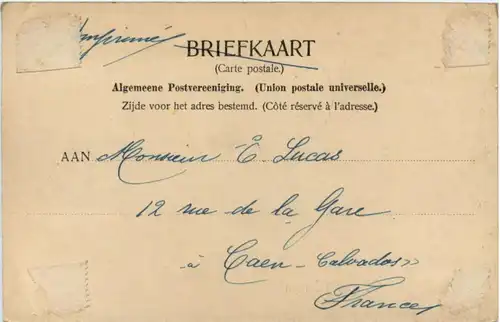 Imprimé
BRIEFKAART
(Carte postale.)
Algemeene Postvereeniging. (Union postale universelle.)
Zijde voor het adres bestemd. (Côté réservé à l'adresse.)
AAN Monsieur E. Lucas
12 rue de la Gare
à Caen - Calvados
France